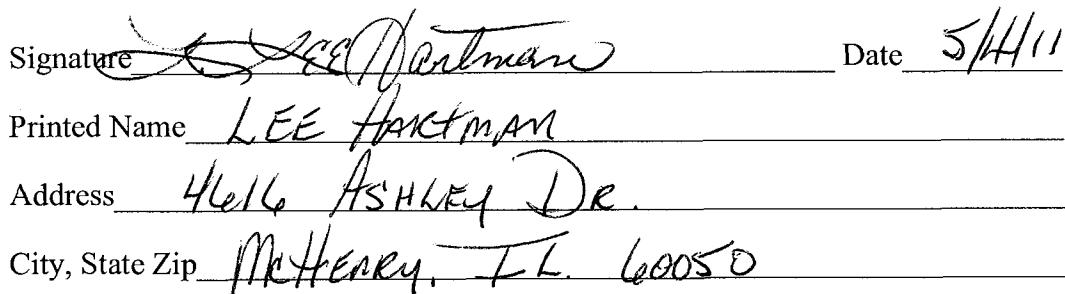 Signature Lee Hartman Date 5/4/11
Printed Name LEE HARTMAN
Address 4616 ASHLEY DR.
City, State Zip McHENRY, IL. 60050